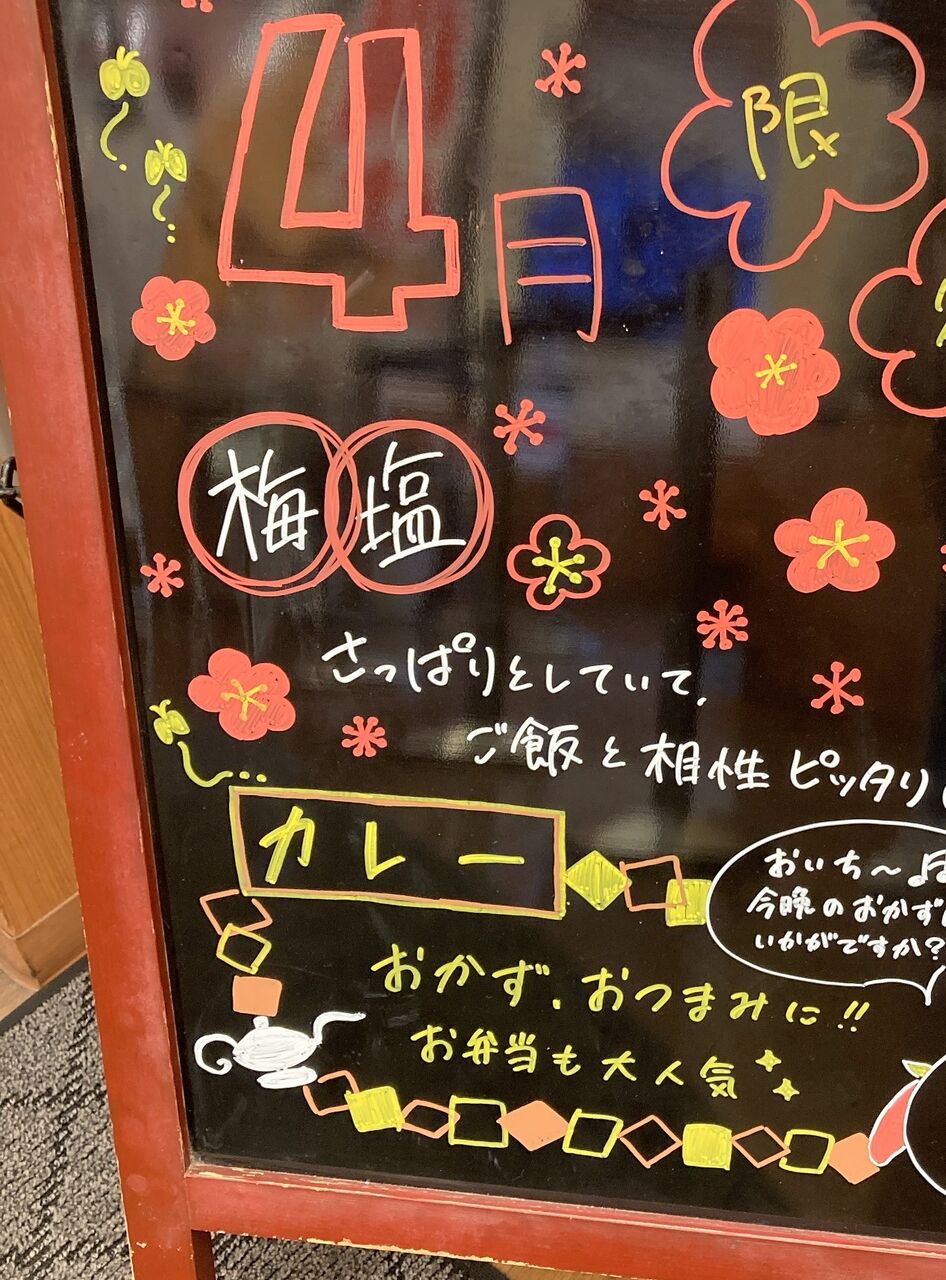 4月
限
梅塩
さっぱりとしていて、
ご飯と相性ピッタリ
カレー
おいち〜♫
今晩のおかず
いかがですか?
おかず、おつまみに!!
お弁当も大人気